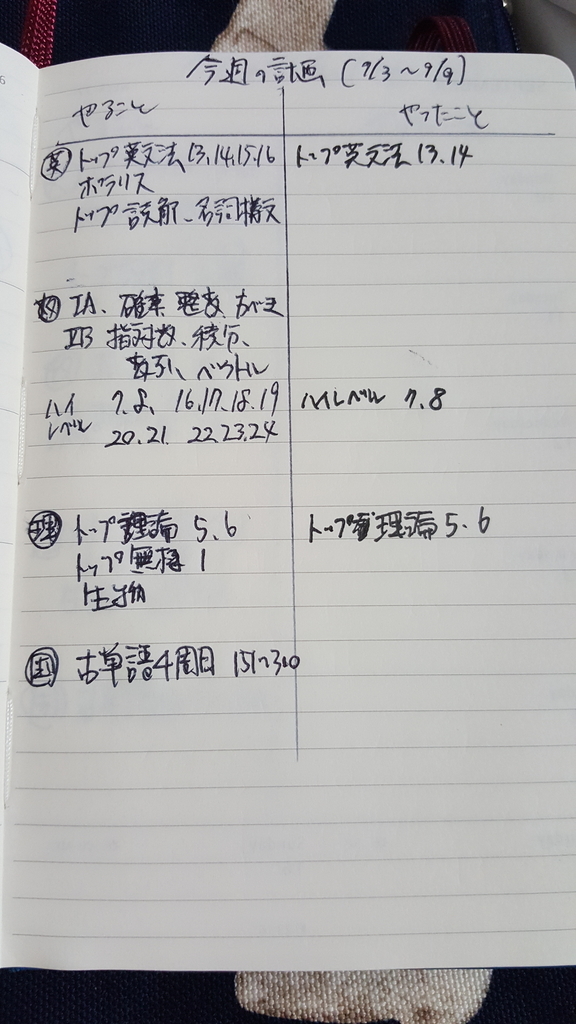 今週の計画 (9/3〜9/9)
やること
やったこと
英 トップ英文法 13.14.15.16
ポラリス
トップ読解、名詞構文
トップ英文法 13.14
数 IA、確率 整数
IIB 指対数、積分、
数列、ベクトル
ハイレベル 7.8、16.17.18.19
20.21. 22.23.24
ハイレベル 7.8
理 トップ理論 5.6
トップ無機 1
生物
トップ理論 5.6
国 古単語4周目 151〜300